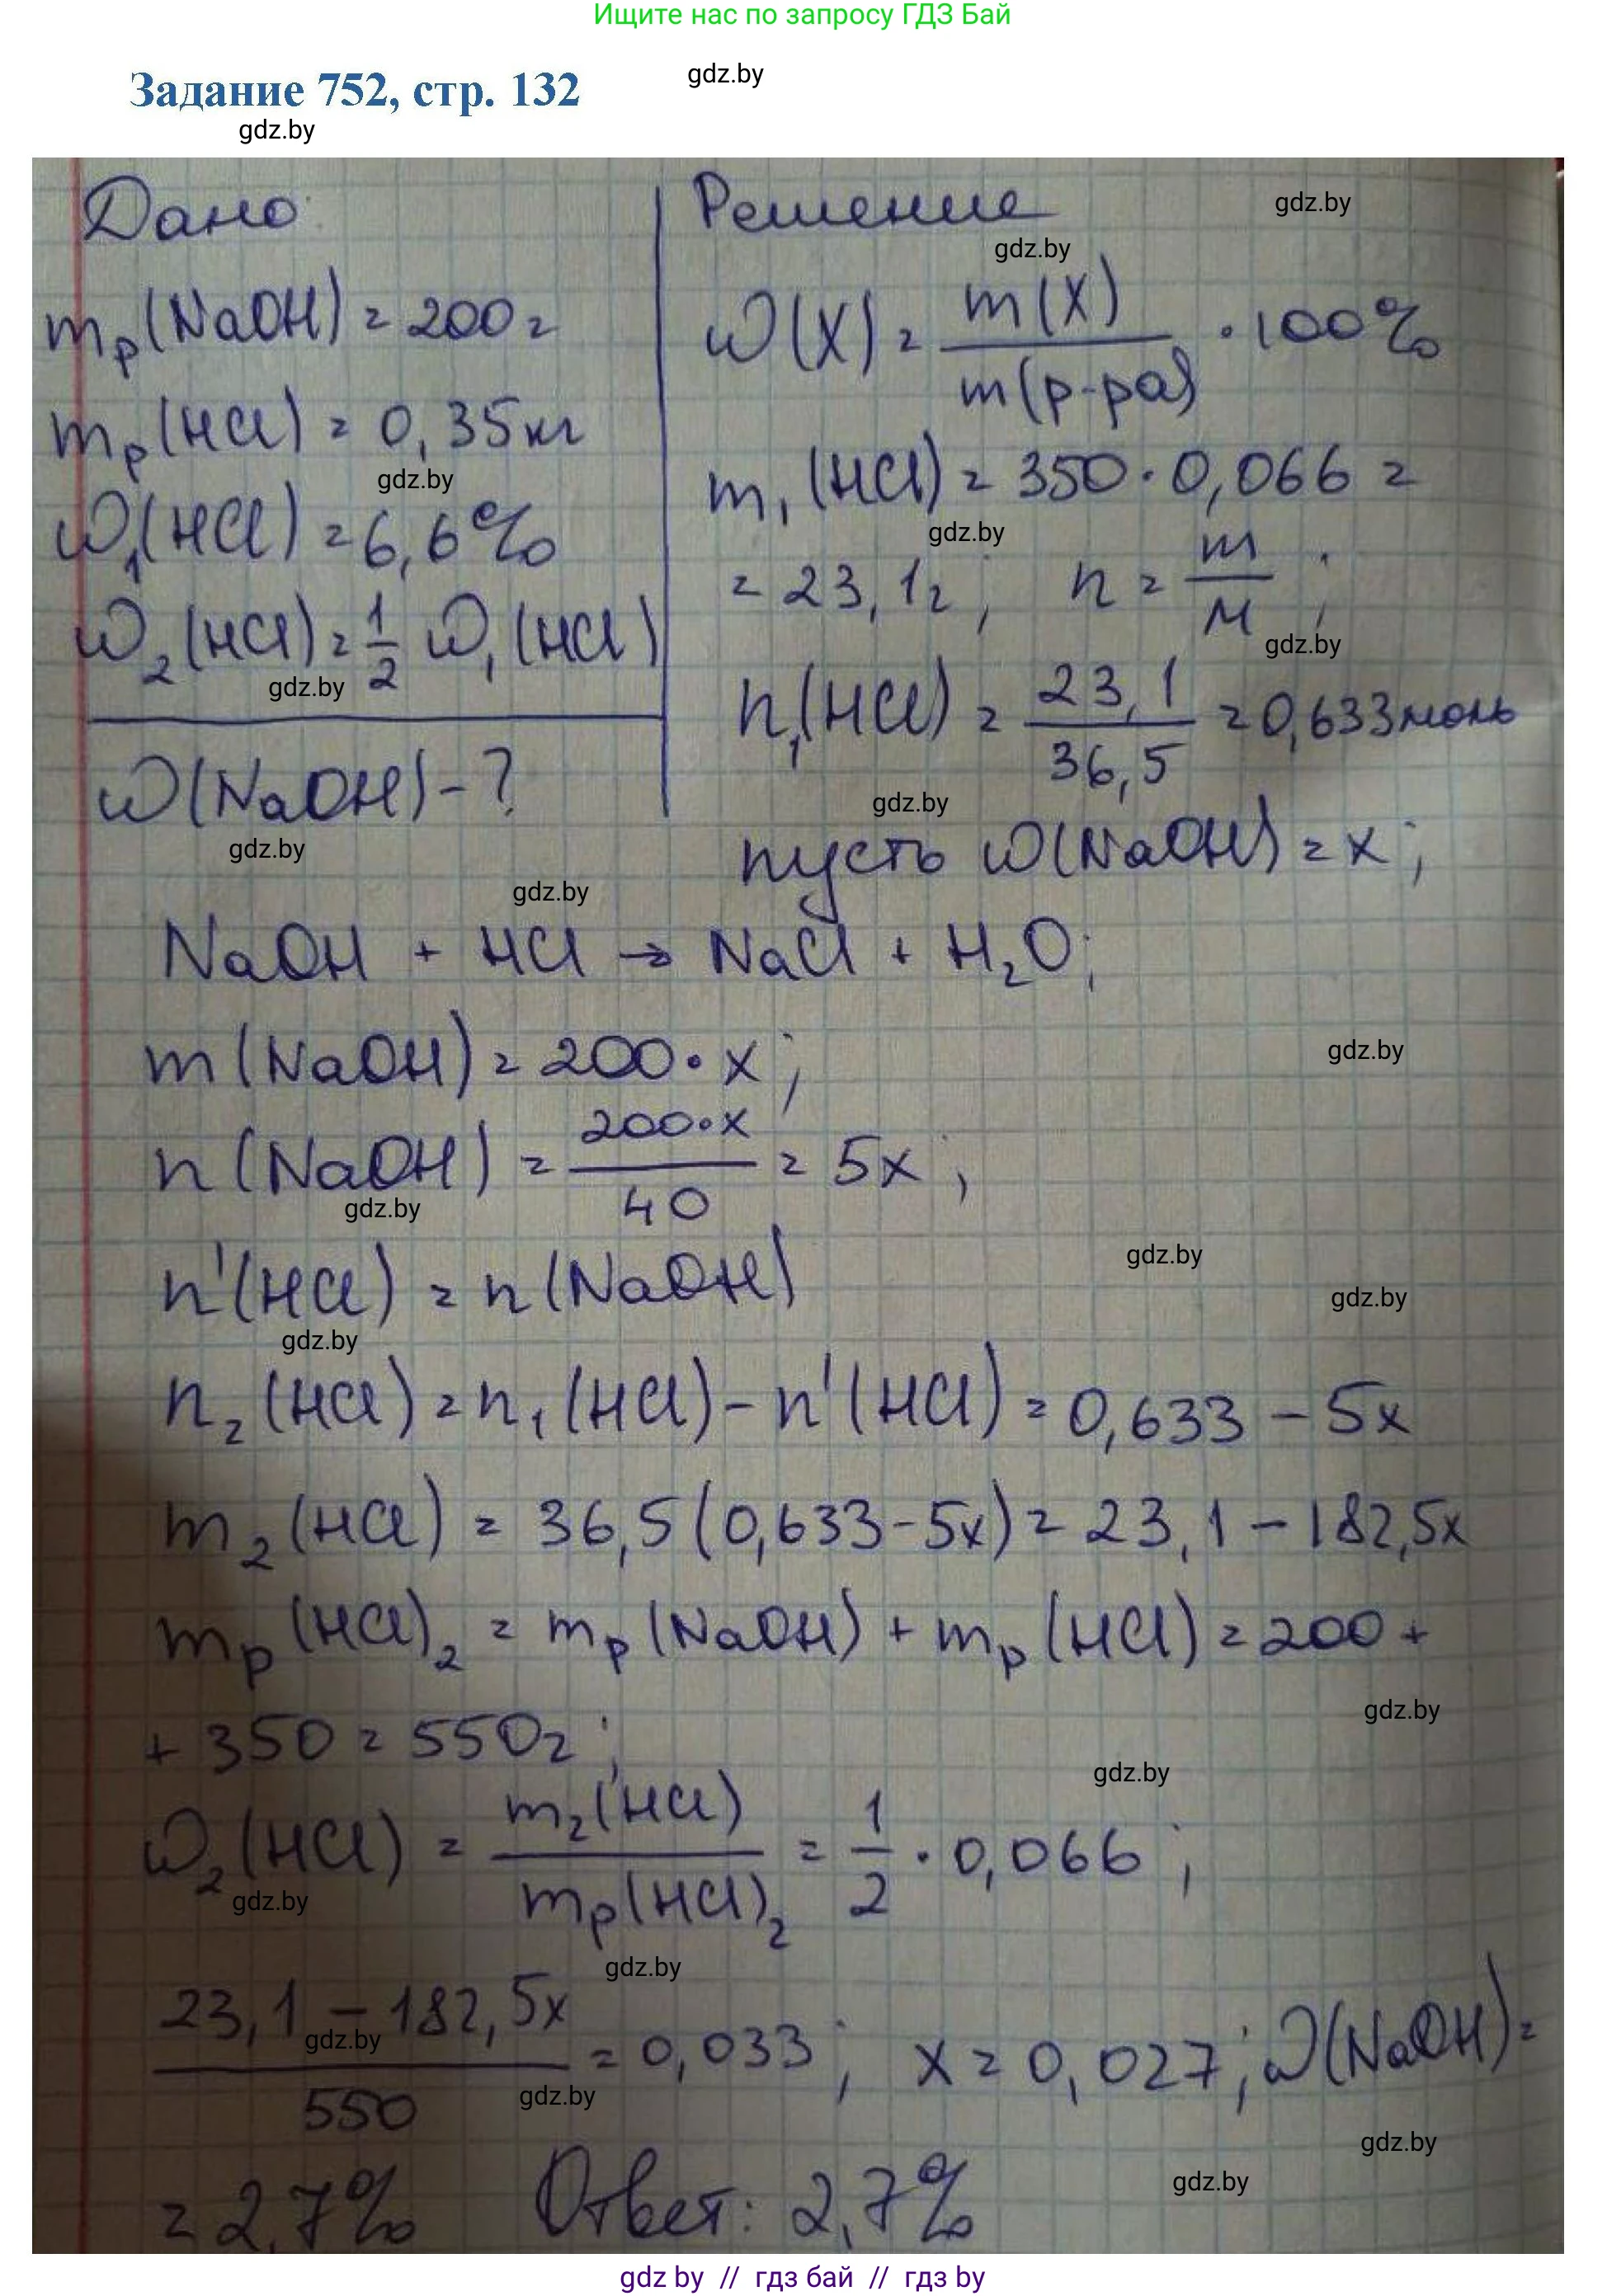 Ищите нас по запросу ГДЗ Бай
Задание 752, стр. 132
gdz.by
gdz.by
Дано:
mр(NaOH) = 200г
mр(HCl) = 0,35кг
gdz.by
ω₁(HCl) = 6,6%
ω₂(HCl) = 1/2 ω₁(HCl)
gdz.by
ω(NaOH) - ?
gdz.by
Решение
gdz.by
gdz.by
ω(X) = m(X)/m(р-ра) · 100%
m₁(HCl) = 350 · 0,066 =
gdz.by
= 23,1г; n = m/M;
gdz.by
n₁(HCl) = 23,1/36,5 = 0,633моль
gdz.by
пусть ω(NaOH) = x;
gdz.by
NaOH + HCl → NaCl + H₂O;
m(NaOH) = 200 · x;
gdz.by
n(NaOH) = 200·x/40 = 5x;
gdz.by
n'(HCl) = n(NaOH)
gdz.by
gdz.by
gdz.by
n₂(HCl) = n₁(HCl) - n'(HCl) = 0,633 - 5x
m₂(HCl) = 36,5(0,633-5x) = 23,1 - 182,5x
mр(HCl)₂ = mр(NaOH) + mр(HCl) = 200 +
gdz.by
+ 350 = 550г;
gdz.by
ω₂(HCl) = m₂(HCl)/mр(HCl)₂ = 1/2 · 0,066;
gdz.by
gdz.by
23,1 - 182,5x/550 = 0,033; x = 0,027; ω(NaOH) =
gdz.by
gdz.by
gdz.by
gdz.by
= 2,7% Ответ: 2,7%
gdz by // гдз бай // гдз by